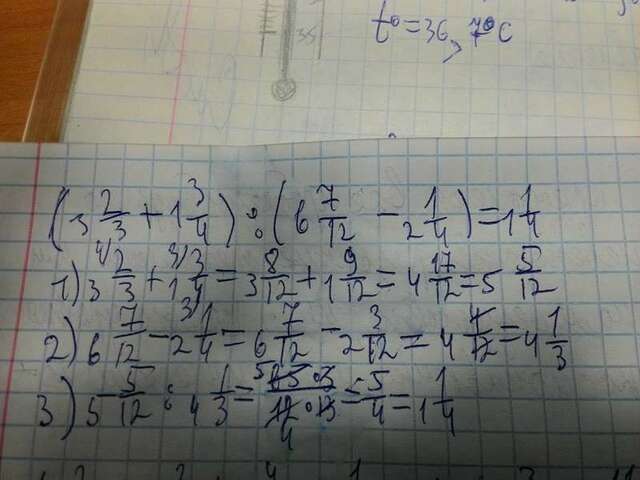 35
t° = 36,7°C
(3 2/3 + 1 3/4) : (6 7/12 - 2 1/4) = 1 1/4
1) 3 2/3 + 1 3/4 = 3 8/12 + 1 9/12 = 4 17/12 = 5 5/12
2) 6 7/12 - 2 1/4 = 6 7/12 - 2 3/12 = 4 4/12 = 4 1/3
3) 5 5/12 : 4 1/3 = 65·3/12·13 = 5/4 = 1 1/4